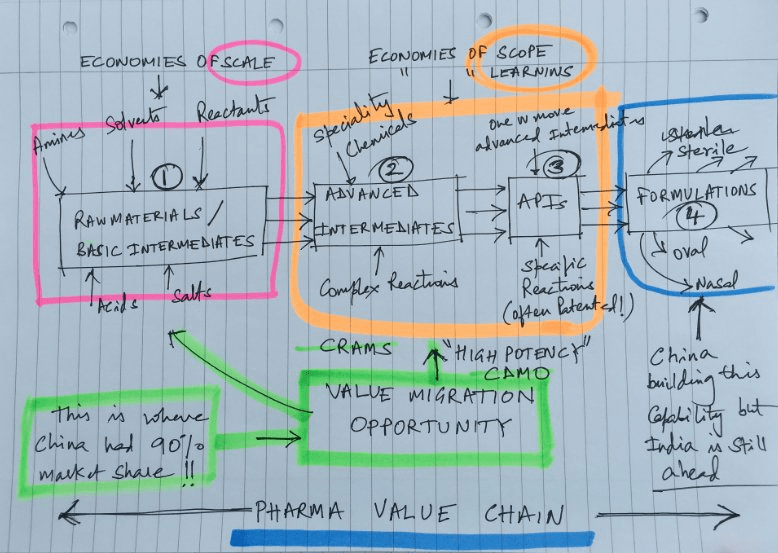 ECONOMIES OF SCALE
ECONOMIES OF SCOPE
" " LEARNING
Amines
Solvents
Reactants
Speciality
Chemicals
One or more
advanced Intermediates
Sterile
1
2
3
RAW MATERIALS /
BASIC INTERMEDIATES
ADVANCED
INTERMEDIATES
APIs
FORMULATIONS
4
Acids
Salts
Complex Reactions
Specific
Reactions
(often Patented!)
Oval
Nasal
CRAMS
"HIGH POTENCY"
CDMO
VALUE MIGRATION
OPPORTUNITY
This is where
China had 90%
market share !!
China
building this
Capability but
India is still
ahead
PHARMA VALUE CHAIN